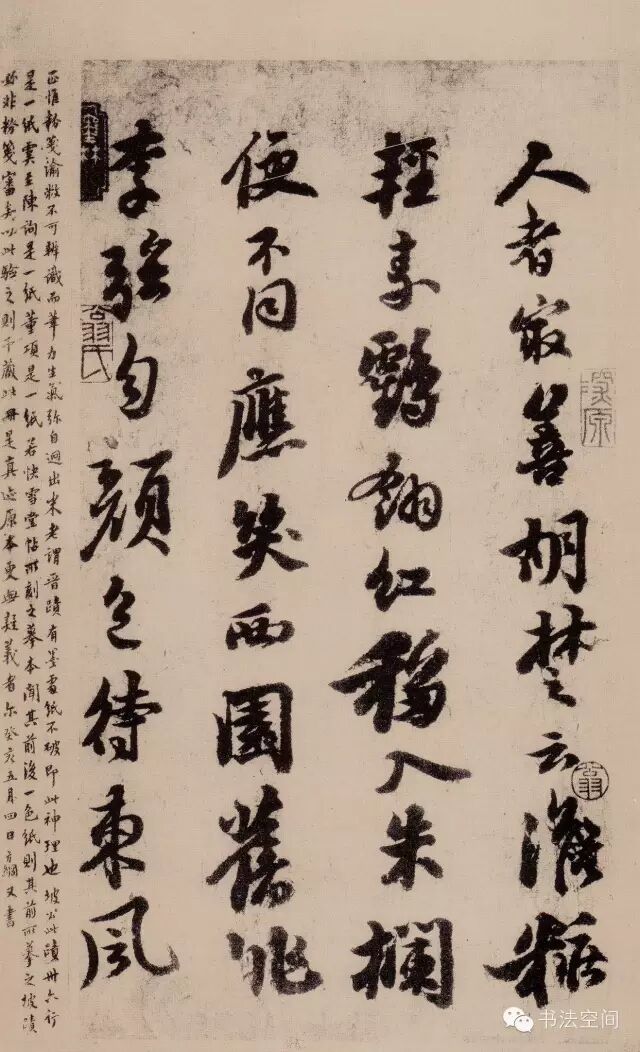 人者㝡善胡楚云澹粧
輕素鶴翎紅移入朱欄
便不同應笑西園舊桃
李強勻顏色待東風
正惟粉箋渝粧不可辨識而筆力生氣弥自迥出米老謂晉蹟有墨處紙不破即此神理也坡公此蹟卅六行
是一紙虞至陳詢是一紙董項是一紙若快雪堂帖所刻之摹本聞其前後一色紙則其前所摹之坡蹟
必非粉箋審矣以此驗之則予藏此冊是真迹原本更無疑義者尔癸亥五月四日方綱又書
翁
书法空间